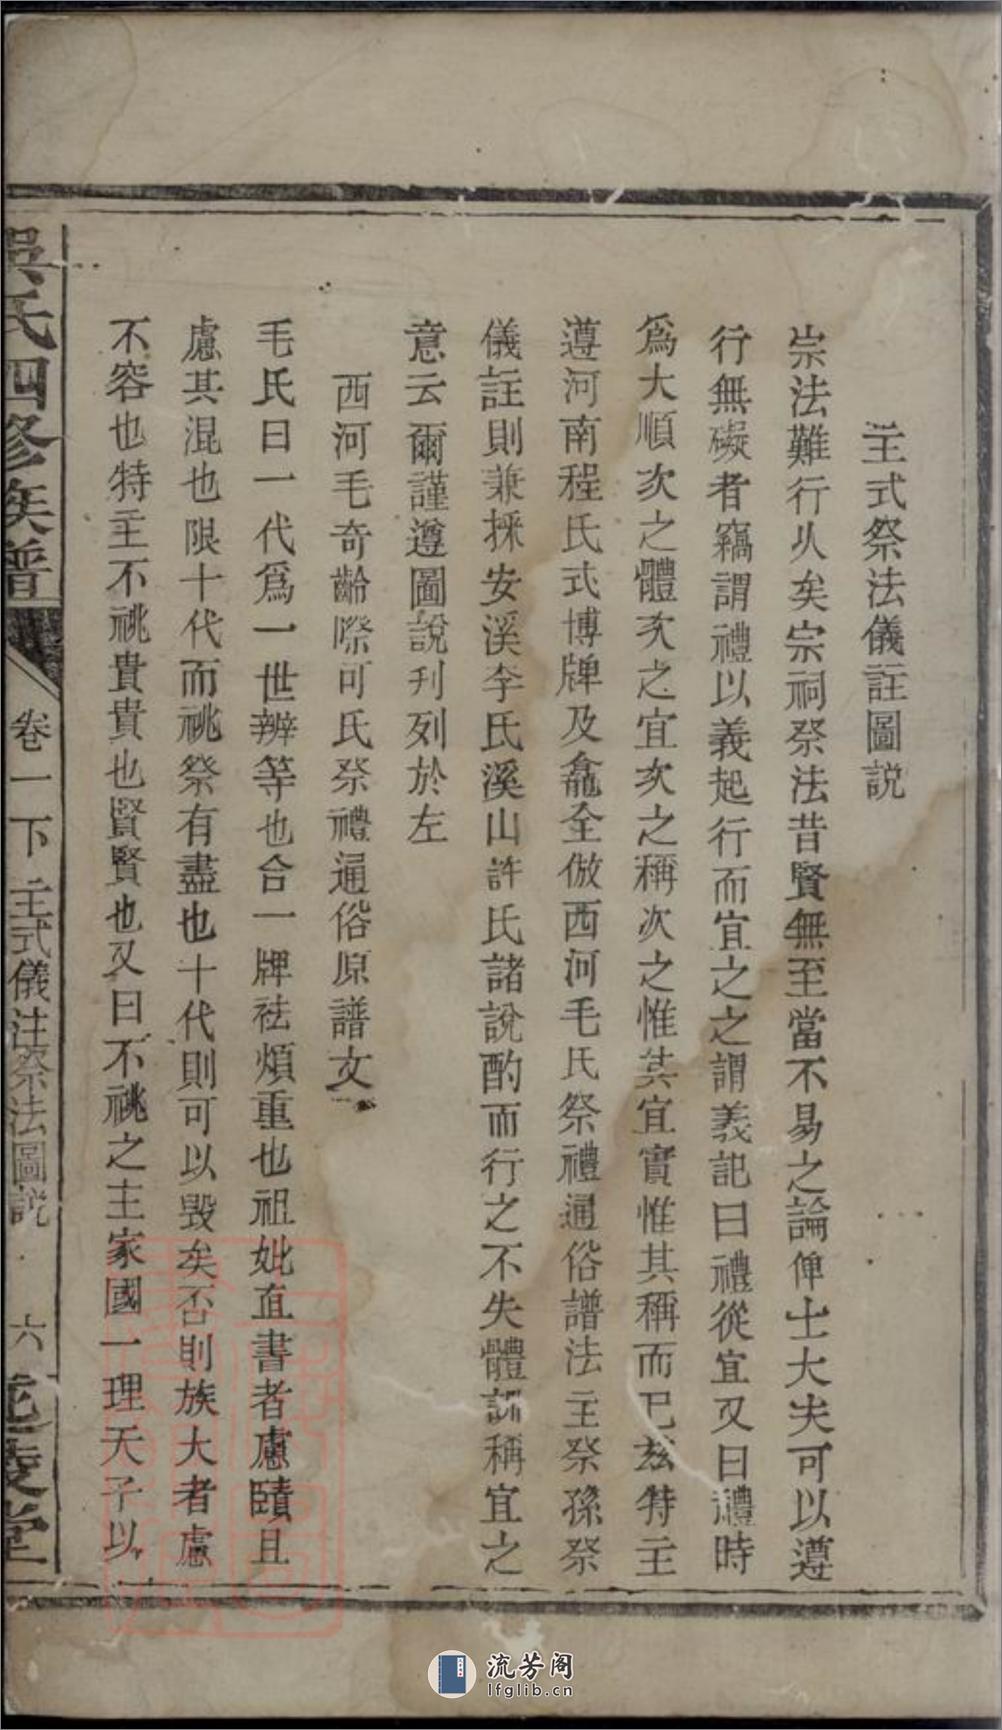 主式祭法儀註圖説
宗法難行乆矣宗祠祭法昔賢無至當不易之論俾士大夫可以遵
行無礙者竊謂禮以義起行而宜之之謂義記曰禮從宜又曰禮時
爲大順次之體次之宜次之稱次之惟其宜實惟其稱而已玆特主
遵河南程氏式博牌及龕全倣西河毛氏祭禮通俗譜法主祭孫祭
儀註則兼採安溪李氏溪山許氏諸說酌而行之不失體訓稱宜之
意云爾謹遵圖說刋列於左
西河毛奇齡際可氏祭禮通俗原譜文
毛氏曰一代爲一世辨等也合一牌祛煩重也祖妣直書者慮賾且
慮其混也限十代而祧祭有盡也十代則可以毁矣否則族大者慮
不容也特主不祧貴貴也賢賢也又曰不祧之主家國一理天子以
吳氏四修族譜
卷一下 主式儀注祭法圖説
六 延陵堂
流芳阁
lfglib.cn